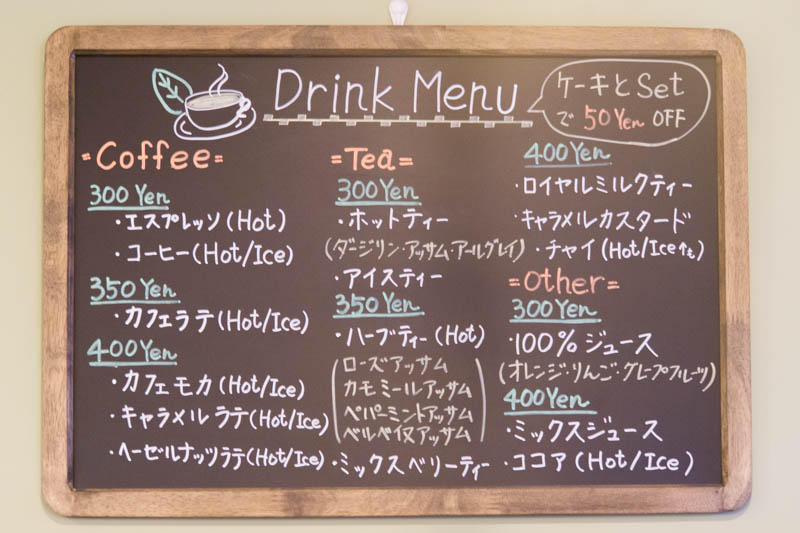 Drink Menu
ケーキとSet
で 50Yen OFF
=Coffee=
300 Yen
・エスプレッソ(Hot)
・コーヒー(Hot/Ice)
350 Yen
・カフェラテ(Hot/Ice)
400 Yen
・カフェモカ(Hot/Ice)
・キャラメルラテ(Hot/Ice)
・ヘーゼルナッツラテ(Hot/Ice)
=Tea=
300 Yen
・ホットティー
(ダージリン・アッサム・アールグレイ)
・アイスティー
350 Yen
・ハーブティー(Hot)
ローズアッサム
カモミールアッサム
ペパーミントアッサム
ベルベイヌアッサム
・ミックスベリーティー
400 Yen
・ロイヤルミルクティー
・キャラメルカスタード
・チャイ(Hot/Iceも)
=Other=
300 Yen
・100%ジュース
(オレンジ・りんご・グレープフルーツ)
400 Yen
・ミックスジュース
・ココア(Hot/Ice)